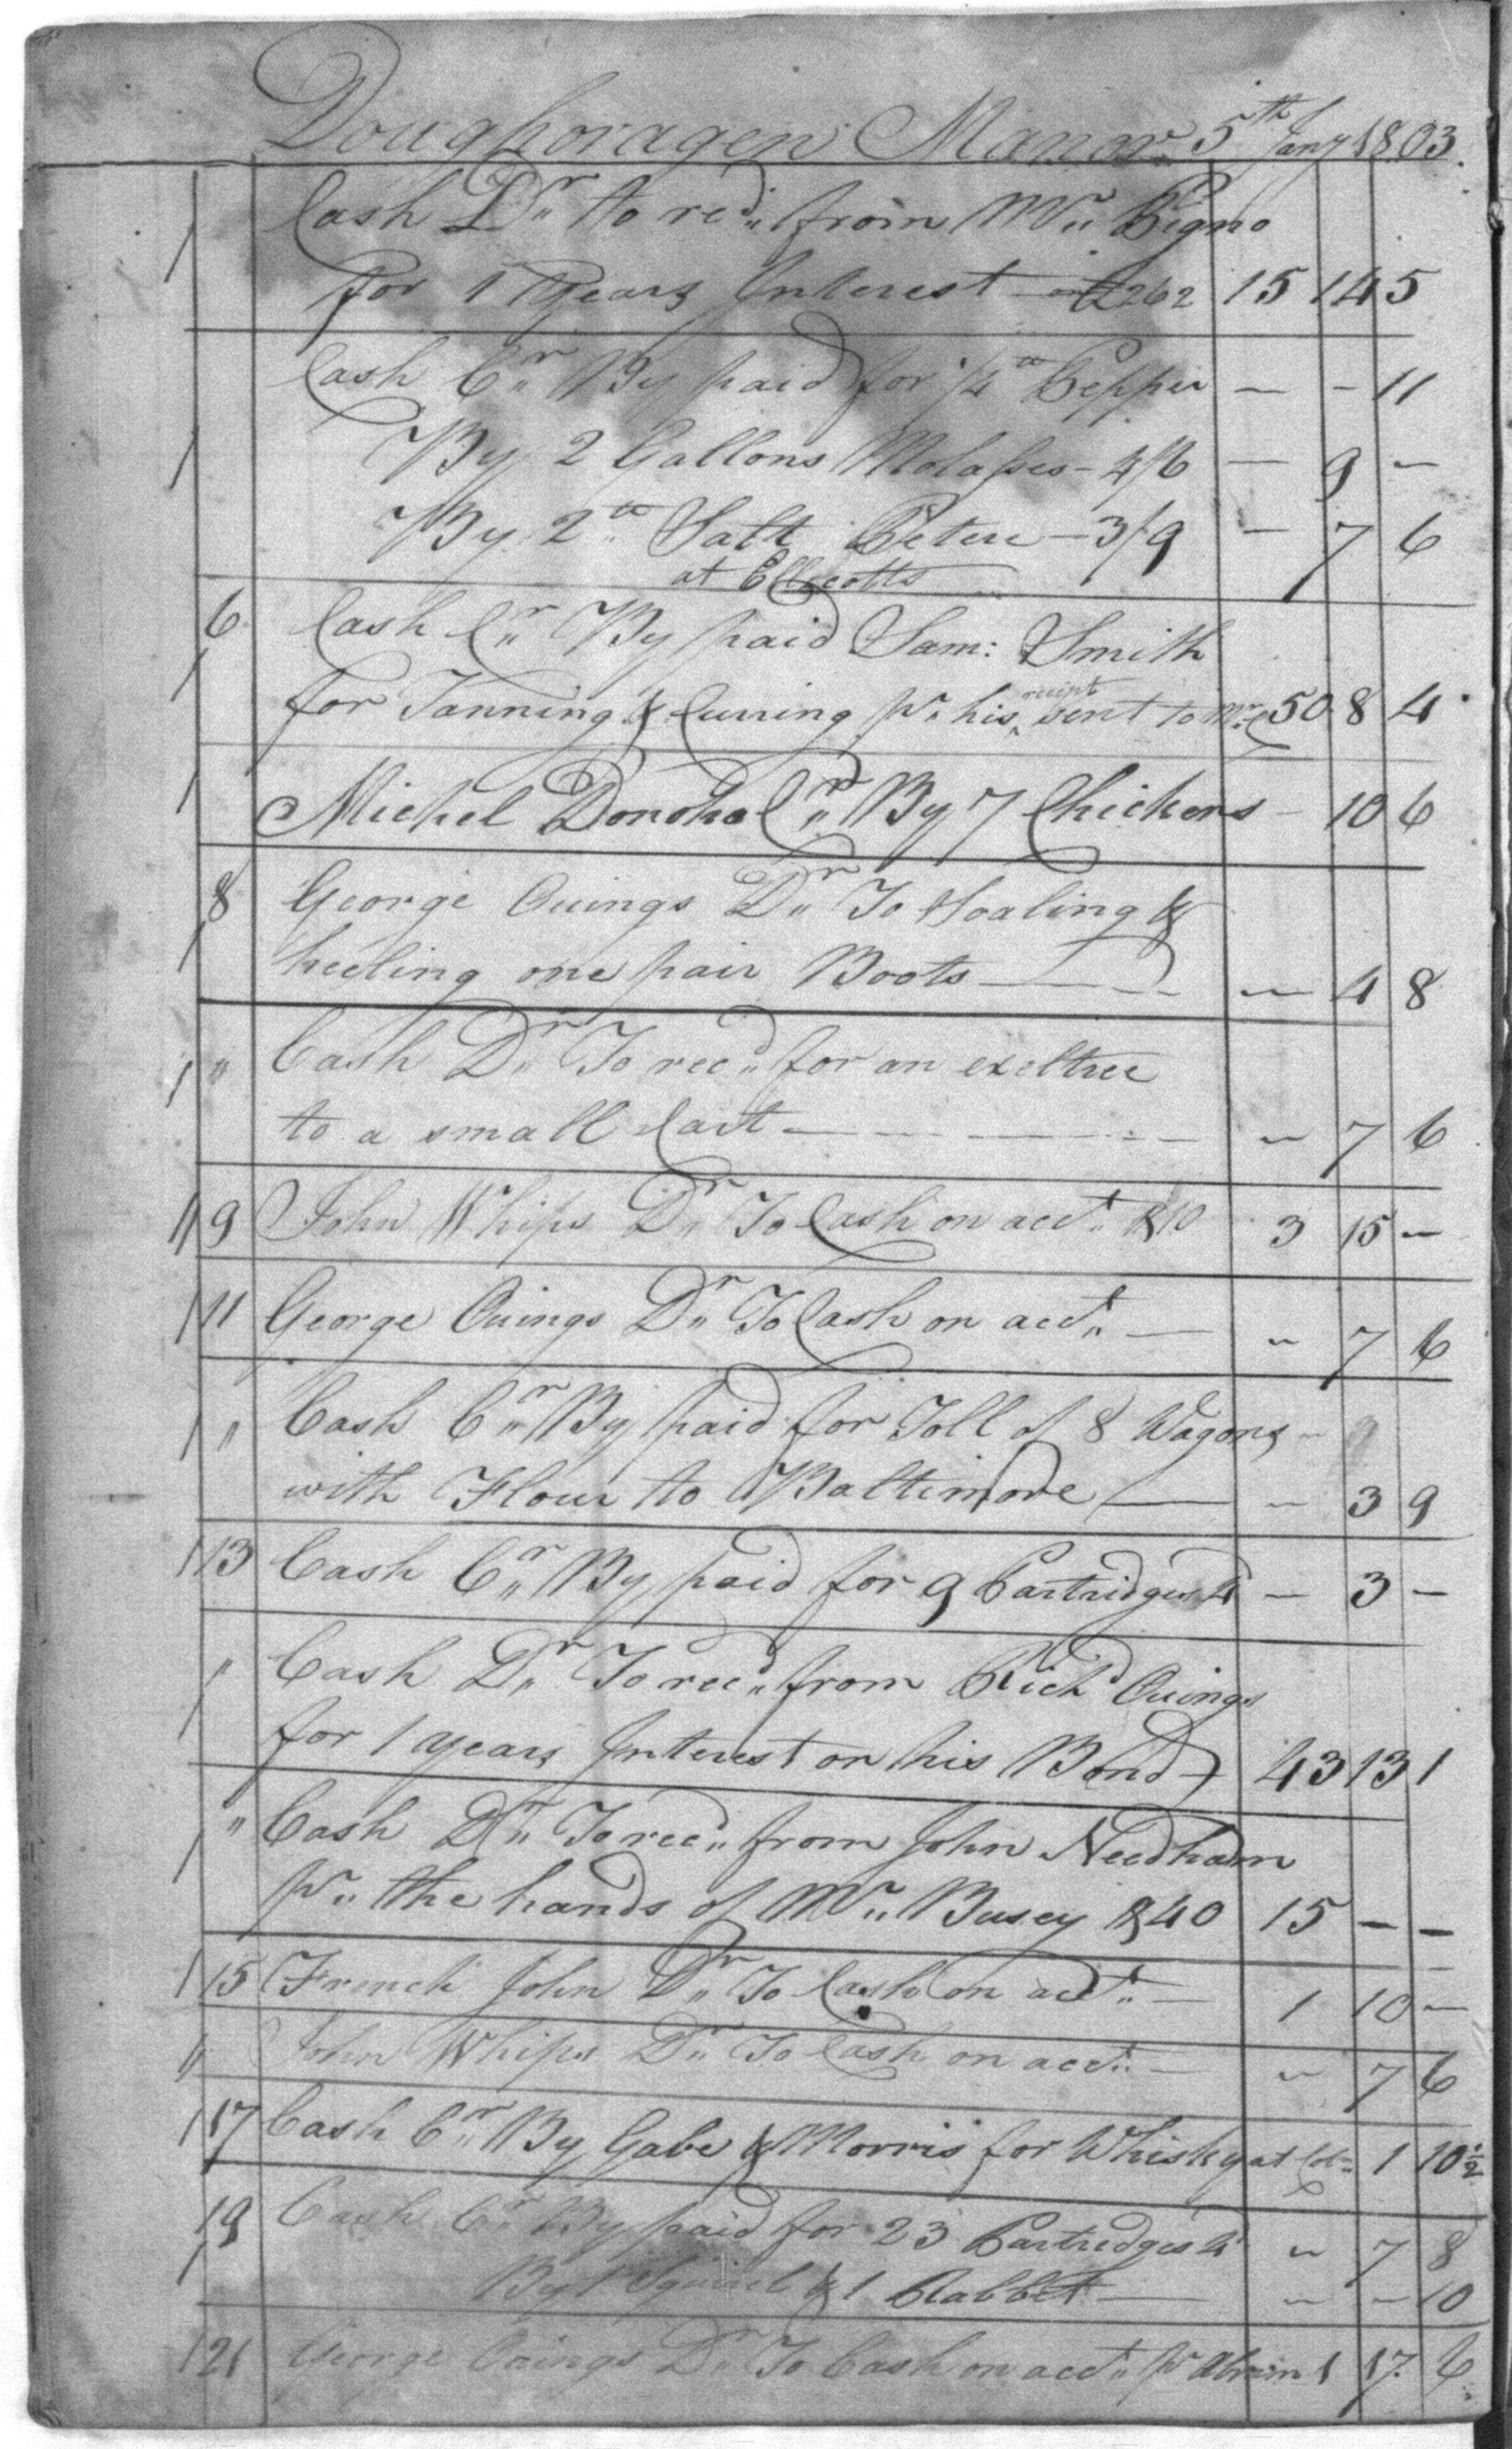 Doughoragen Manor 5th Jany 1803.
Cash Dr to recd from Wm Pigno
for 1 Years Interest on £262 15 14 5
Cash Cr By paid for 1/4 lb Pepper — - 11
By 2 Gallons Molasses - 4/6 — 9 —
By 2 lb Salt Peter - 3/9 — 7 6
at Ellicotts
6 Cash Cr By paid Sam: Smith
for Tanning & Curring pr his receipt sent to Mr C 50 8 4
Michel Donoho Cr By 7 Chickens - 10 6
8 George Owings Dr To Soaling &
heeling one pair Boots — 4 8
" Cash Dr To recd for an exeltree
to a small Cart — 7 6
9 John Whips Dr To Cash on acct $10 3 15 —
11 George Owings Dr To Cash on acct — 7 6
" Cash Cr By paid for Toll of 8 Wagons
with Flour to Baltimore — 3 9
13 Cash Cr By paid for 9 Partridges 4 — 3 —
" Cash Dr To recd from Richd Owings
for 1 years Interest on his Bond 43 13 1
" Cash Dr To recd from John Needham
pr the hands of Mr Busey $40 15 — —
15 French John Dr To Cash on acct — 1 10 —
" John Whips Dr To Cash on acct — 7 6
17 Cash Cr By Gabe & Morris for Whisky at 1 10½
19 Cash Cr By paid for 23 Partredges 4 — 7 8
By 1 Squirel & 1 Rabbet — — - 10
21 George Owings Dr To Cash on acct pr 1 17 6